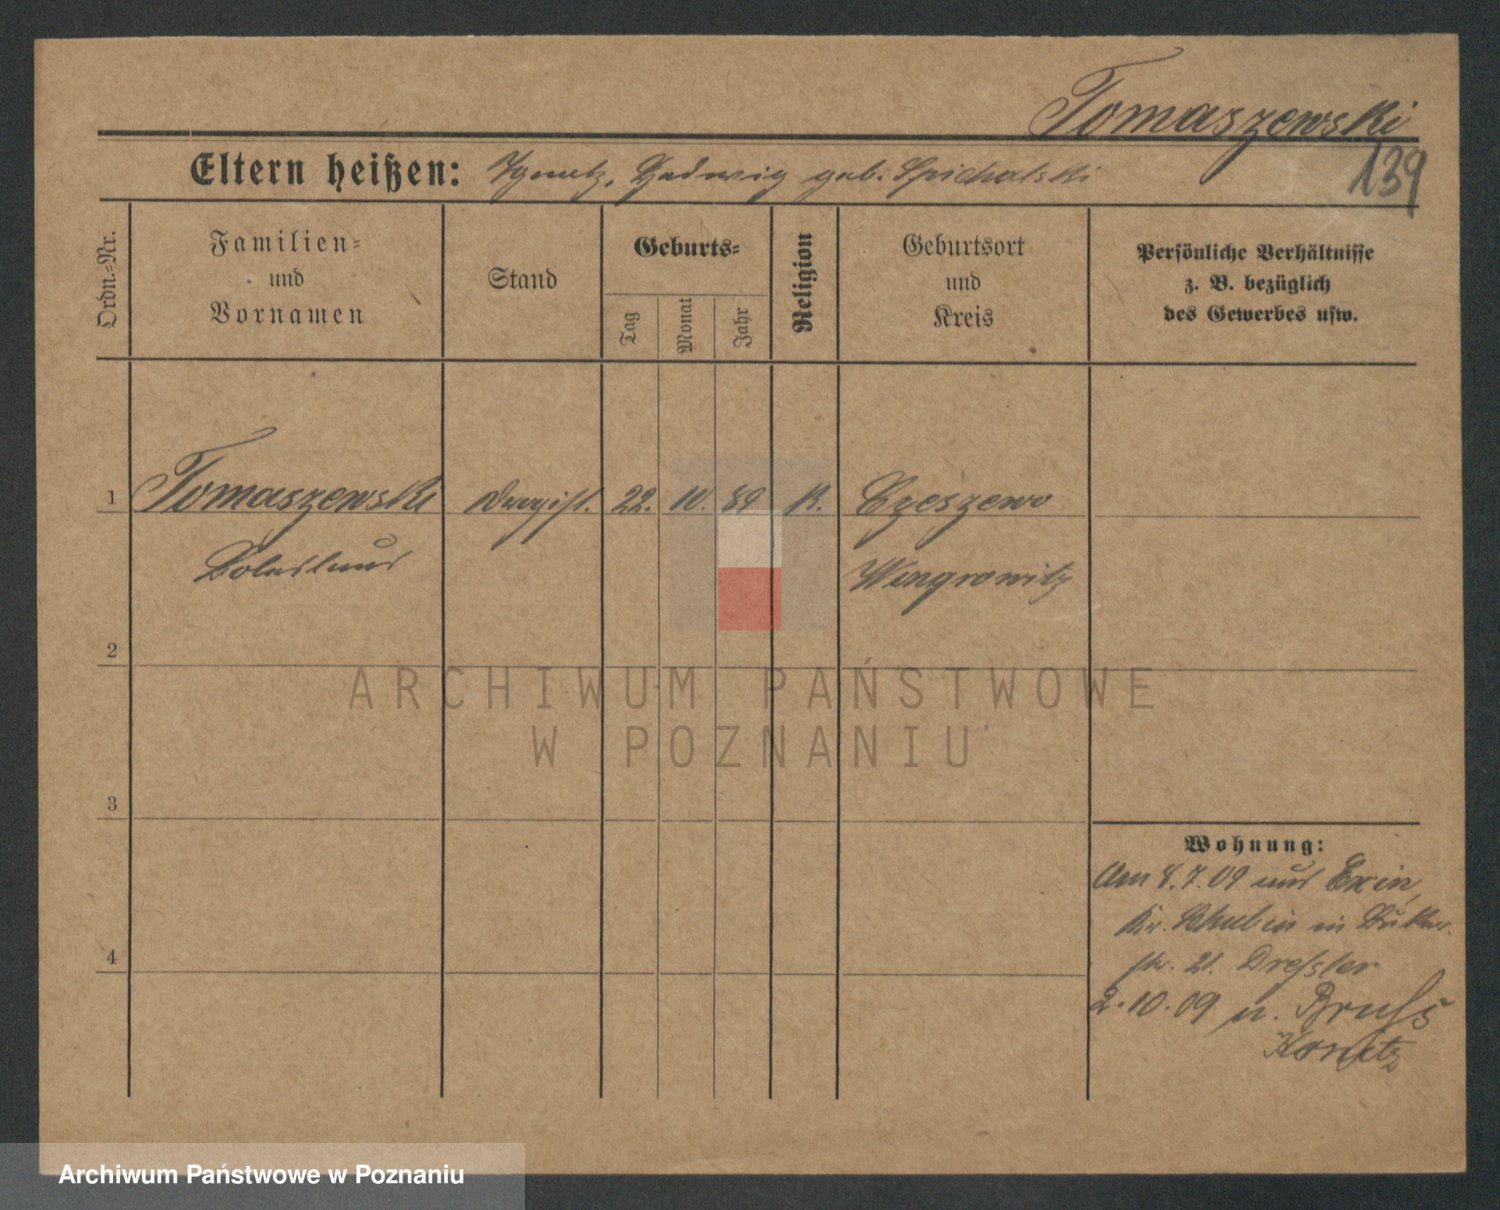 Tomaszewski
139
Eltern heißen: Ignatz, Hedwig geb. Spichalski
Ordn.=Nr.
Familien=
und
Vornamen
Stand
Geburts=
Tag
Monat
Jahr
Religion
Geburtsort
und
Kreis
Persönliche Verhältnisse
z. B. bezüglich
des Gewerbes usw.
1 Tomaszewski Drogist. 22. 10. 89 K. Czeszewo
Boleslaus Wongrowitz
2
3
4
Wohnung:
Am 8.7.09 aus Exin,
Kr. Schubin in
str. 21. Dressler
2.10.09 n. Bruß
Konitz
ARCHIWUM PAŃSTWOWE
W POZNANIU
Archiwum Państwowe w Poznaniu